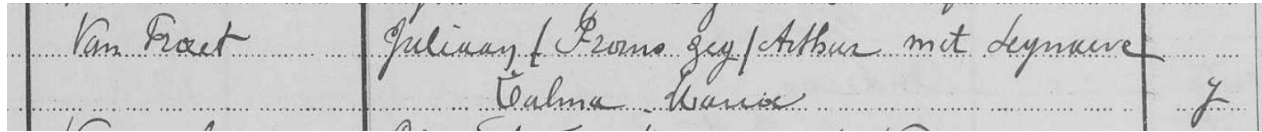 Van Troet Juliaan / Promo gez / Arthur met Leynaeve
Talma Maria y